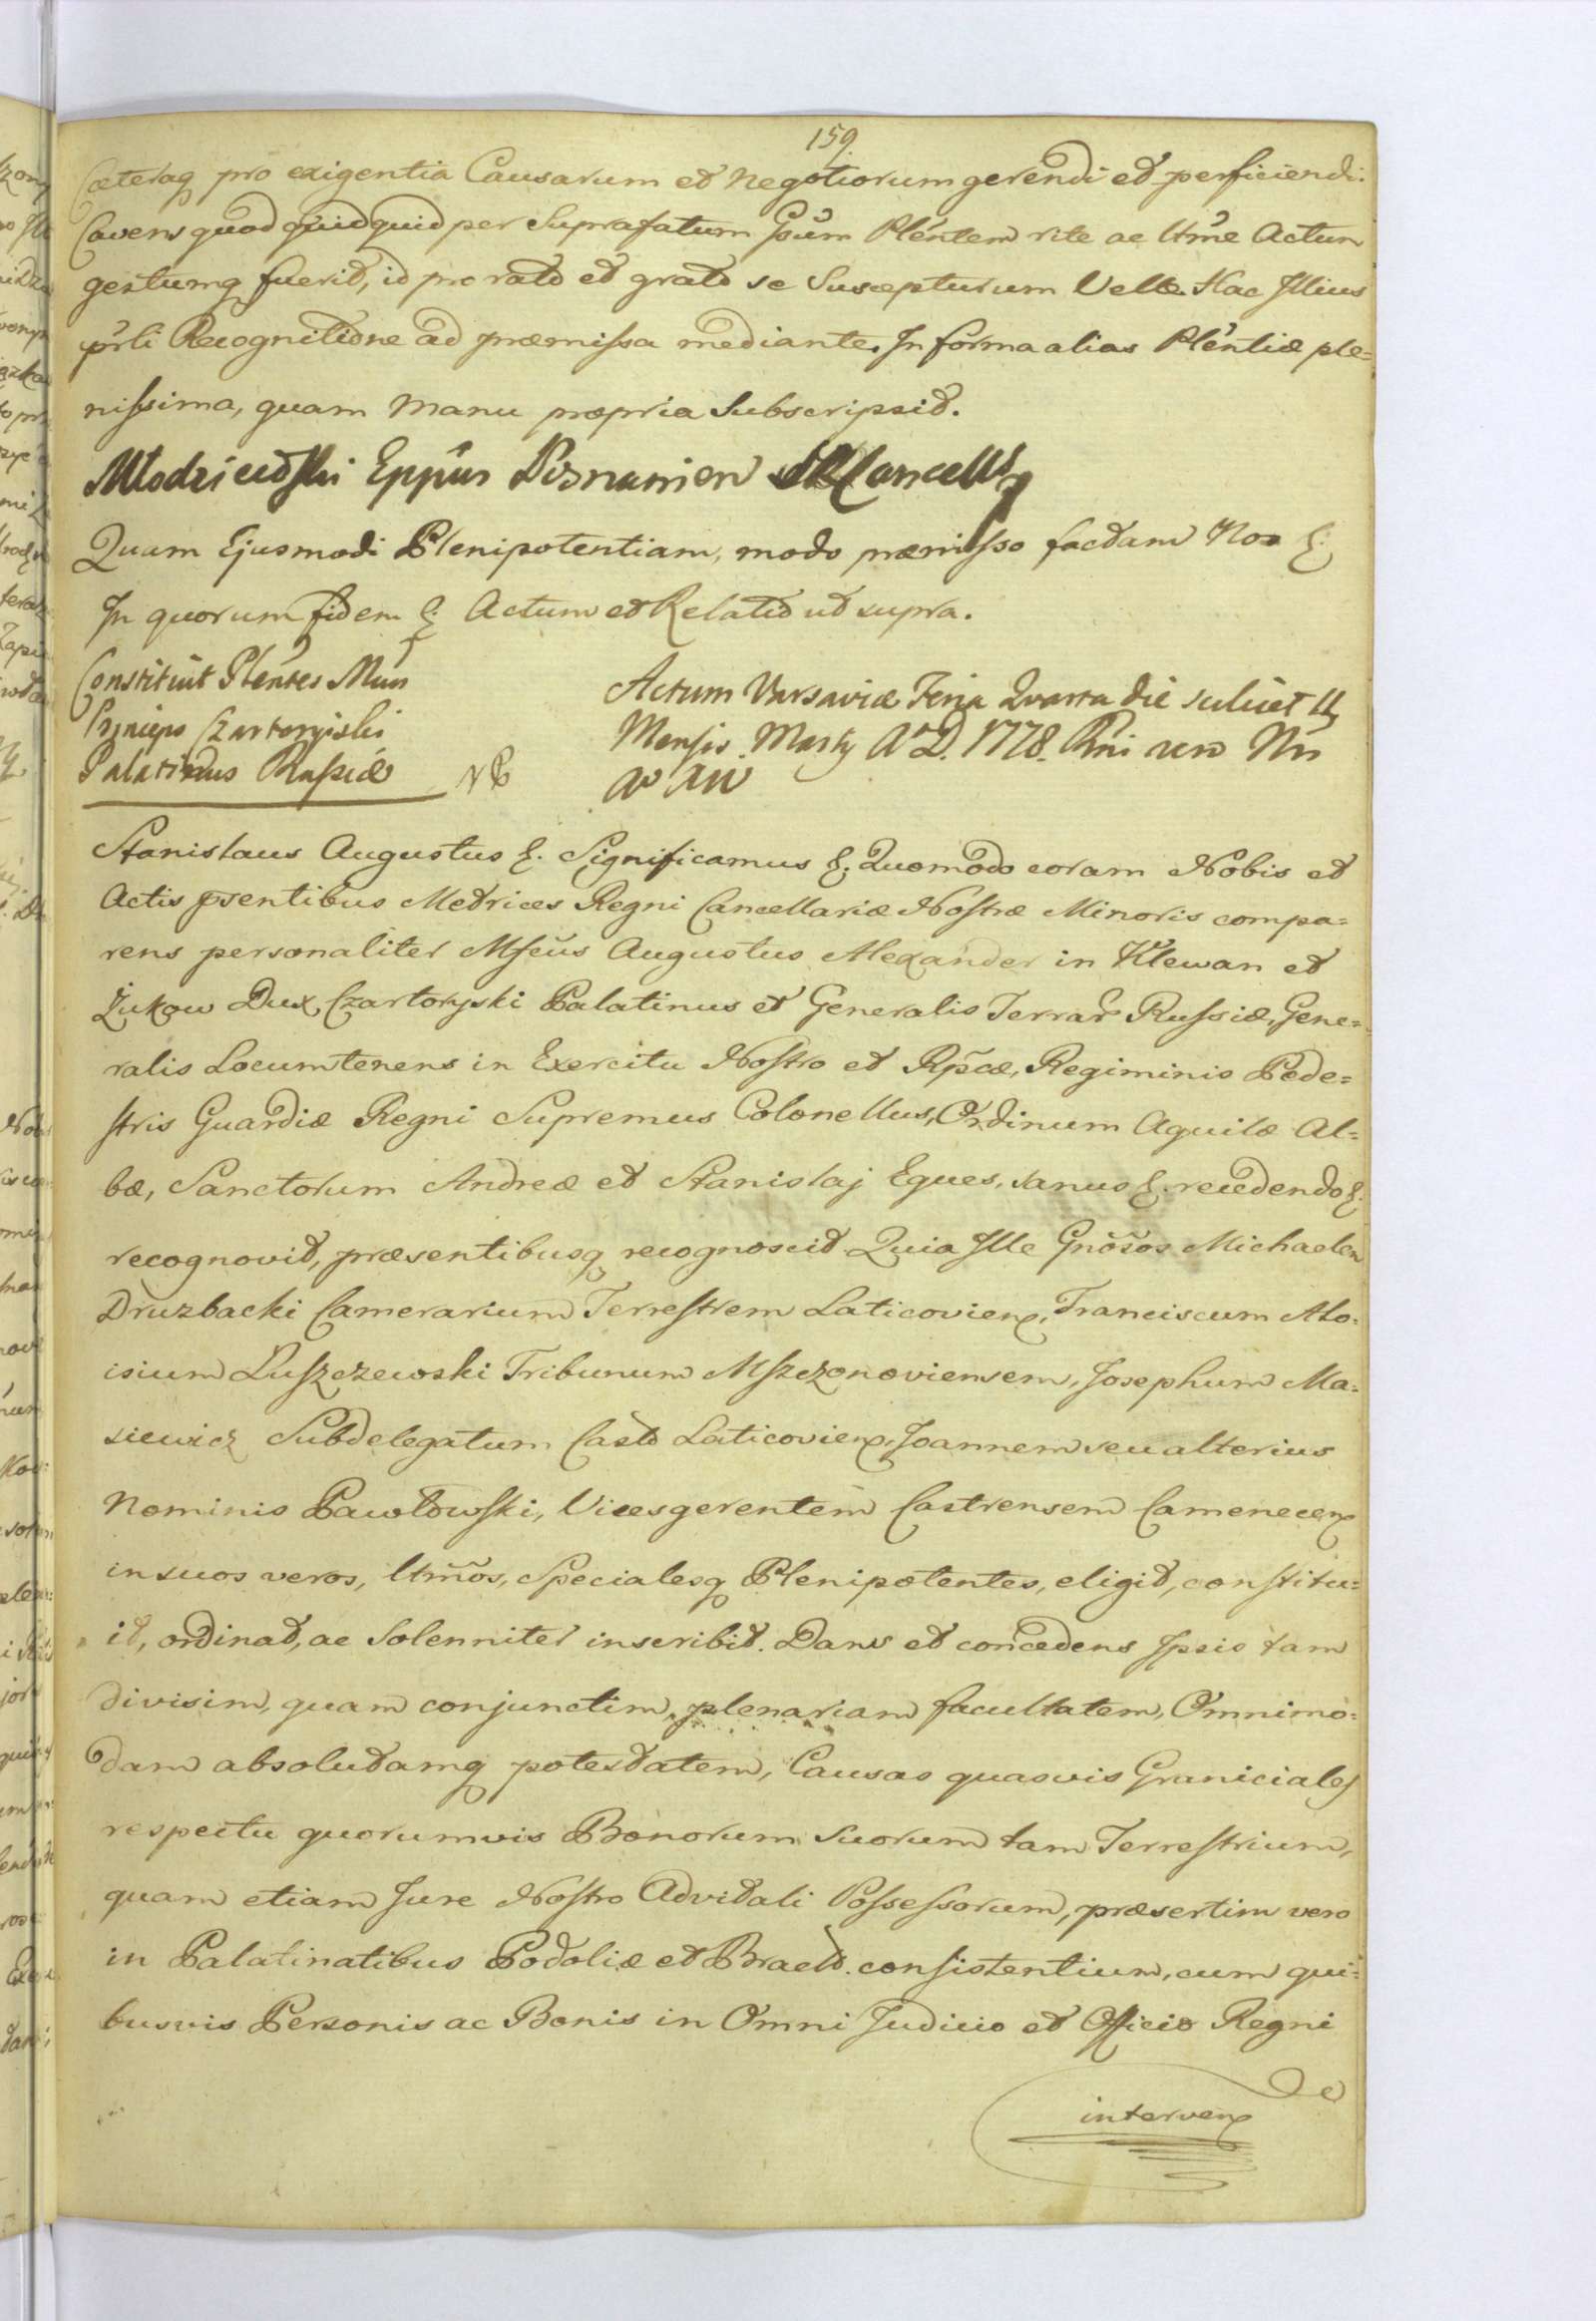 159.
Cæteraq pro exigentia Causarum et Negotiorum gerendi et perficiendi.
Cavens quod quidquid per Suprafatum Gsum Pléntem rite ac lttme Actum
gestumq fuerit, id pro rato et grato se Suscepturum Velle. Hac Illius
pnli Recognitione ad præmissa mediante. In forma alias Pléntiæ ple=
nissima, quam Manu propria Subscripsit.
Młodzieiowski Eppus Posnanien Cancell
Quam Ejusmodi Plenipotentiam, modo præmisso factam Nos &.
In quorum fidem &. Actum et Relatio ut supra.
Constituit Pléntes Mun
Princeps Czartoryiski
Palatinus Russiæ NB
Actum Varsaviæ Feria Quarta die scilicet 11
Mensis Martij Ao D. 1778. Rni vero Nri
Ao XIV
Stanislaus Augustus &. Significamus &. Quomodo coram Nobis et
Actis psentibus Metrices Regni Cancellariæ Nostræ Minoris compa=
rens personaliter Mfcus Augustus Alexander in Klewan et
Żukow Dux Czartoryski Palatinus et Generalis Terrar Russiæ, Gene=
ralis Locumtenens in Exercitu Nostro et Rpcæ, Regiminis Pede=
stris Guardiæ Regni Supremus Colonellus, Ordinum Aquilæ Al=
bæ, Sanctorum Andreæ et Stanislaj Eques, sanus &. recedendo &.
recognovit, præsentibusq recognoscit Quia Ille Gnosos Michaelem
Druzbacki Camerarium Terrestrem Laticovien, Franciscum Alo=
isium Luszczewski Tribunum Mszczonoviensem, Josephum Ma=
siewicz Subdelegatum Casto Laticovien, Joannem seu alterius
Nominis Pawłowski, Vicesgerentem Castrensem Camenecen
in suos veros, lttmos, Specialesq Plenipotentes, eligit, constitu=
it, ordinat, ac Solenniter inscribit. Dans et concedens Ipsis tam
divisim, quam conjunctim, plenariam facultatem, Omnimo=
dam absolutamq potestatem, Causas quasvis Graniciales
respectu quorumvis Bonorum Suorum tam Terrestrium,
quam etiam Jure Nostro Advitali Possessorum, præsertim vero
in Palatinatibus Podoliæ et Bracl. consistentium, cum qui=
busvis Personis ac Bonis in Omni Judicio et Officio Regni
interven